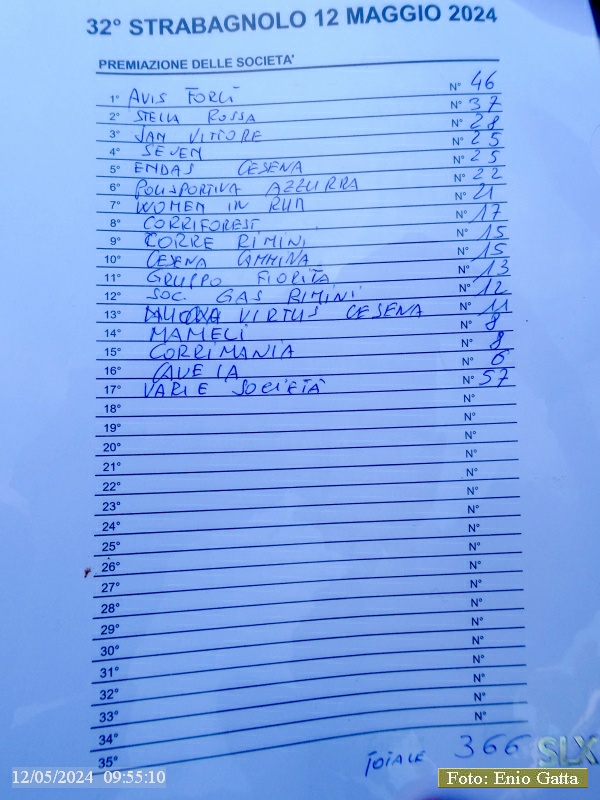 32° STRABAGNOLO 12 MAGGIO 2024
PREMIAZIONE DELLE SOCIETA'
1° AVIS FORLÌ N° 46
2° STELLA ROSSA N° 37
3° SAN VITTORE N° 28
4° SEVEN N° 25
5° ENDAS CESENA N° 25
6° POLISPORTIVA AZZURRA N° 22
7° WOMEN IN RUN N° 21
8° CORRIFOREST N° 17
9° CORRE RIMINI N° 15
10° CESENA CAMMINA N° 15
11° GRUPPO FIORITA N° 13
12° SOC. GAS RIMINI N° 12
13° VIRTUS CESENA N° 11
14° MAMELI N° 8
15° CORRIMANIA N° 8
16° CAVEJA N° 6
17° VARIE SOCIETÀ N° 57
18° N°
19° N°
20° N°
21° N°
22° N°
23° N°
24° N°
25° N°
26° N°
27° N°
28° N°
29° N°
30° N°
31° N°
32° N°
33° N°
34° N°
35°
TOTALE 366
SLX
12/05/2024 09:55:10
Foto: Enio Gatta